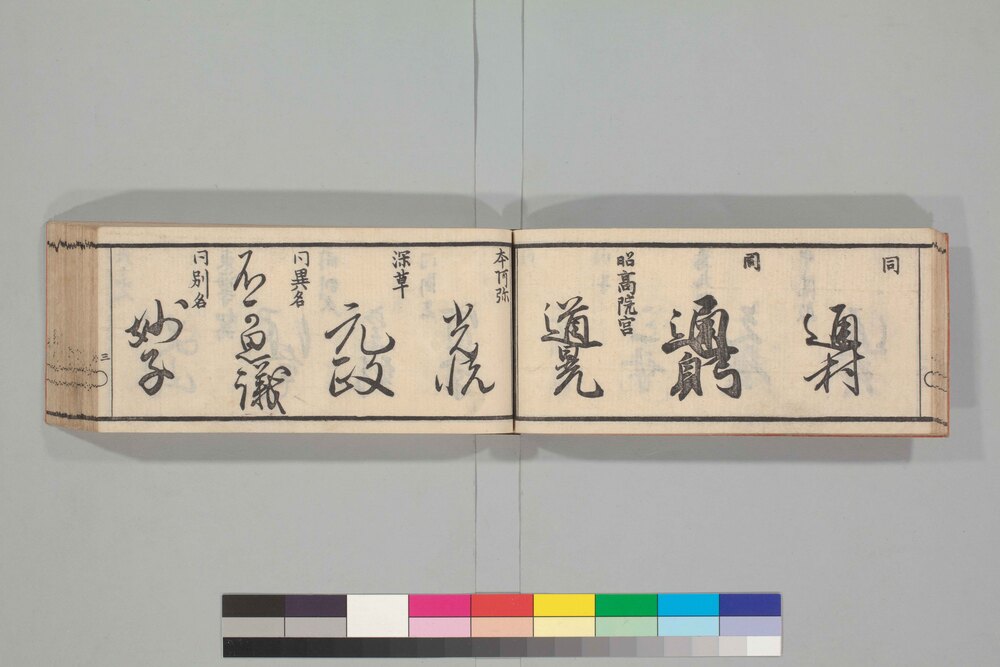 同
通村
同
通躬
昭高院宮
道晃
本阿弥
光悦
深草
元政
同異名
不可思議
同別名
妙子
三